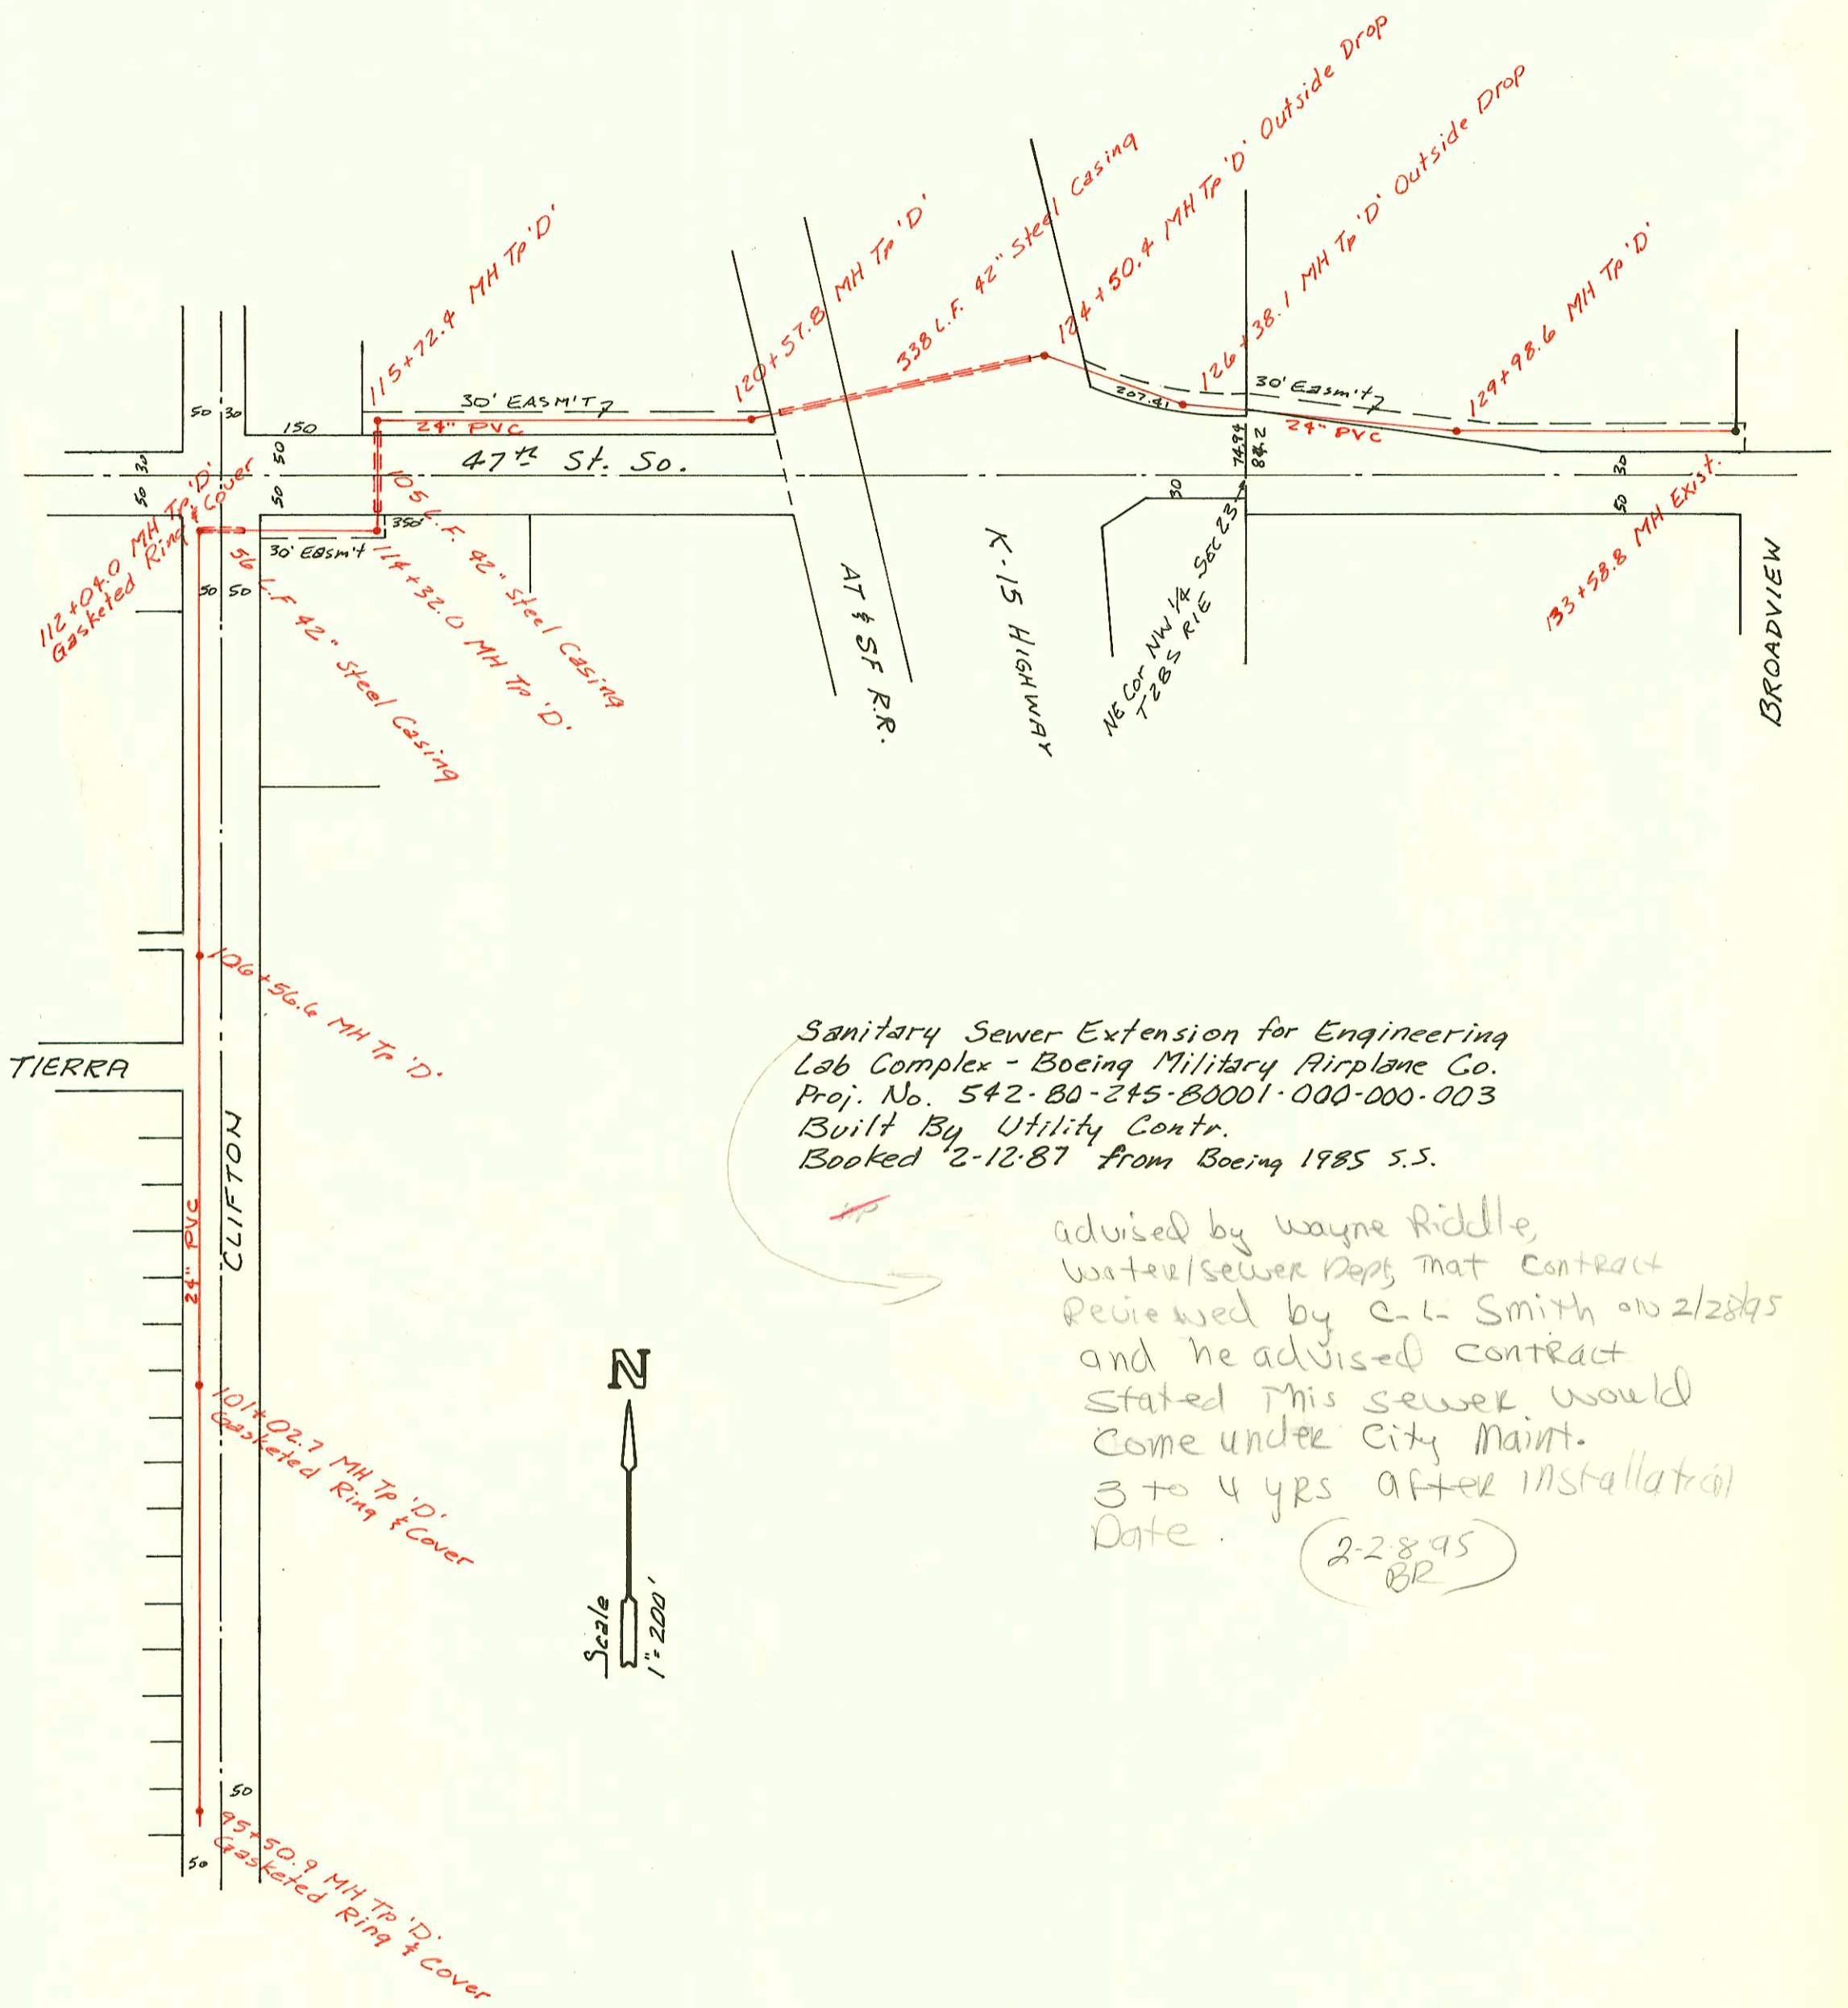 115+72.4 MH Tp 'D'
120+57.8 MH Tp 'D'
338 L.F. 42" Steel Casing
124+50.4 MH Tp 'D' Outside Drop
126+38.1 MH Tp 'D' Outside Drop
129+98.6 MH Tp 'D'
50
30
150
30' EASM'T
24" PVC
207.41
30' Easm't
24" PVC
30
50
50
50
47th St. So.
105 L.F. 42" Steel Casing
74.94
84.2
30
30
50
133+58.8 MH Exist.
112+04.0 MH Tp 'D'
Gasketed Ring & Cover
56 L.F 42" Steel Casing
30' Easm't
350'
114+32.0 MH Tp 'D'
50
50
AT & SF R.R.
K-15 HIGHWAY
NE Cor NW 1/4 Sec 23
T28S R1E
BROADVIEW
106+56.6 MH Tp 'D'
TIERRA
CLIFTON
24" PVC
101+02.7 MH Tp 'D'
Gasketed Ring & Cover
50
50
95+50.9 MH Tp 'D'
Gasketed Ring & Cover
Sanitary Sewer Extension for Engineering
Lab Complex - Boeing Military Airplane Co.
Proj. No. 542-80-245-80001-000-000-003
Built By Utility Contr.
Booked 2-12-87 from Boeing 1985 S.S.
advised by Wayne Riddle,
Water/Sewer Dept, That Contract
Reviewed by C-L- Smith on 2/28/95
and he advised contract
Stated This sewer would
Come under City Maint.
3 to 4 yrs after installation
Date.
2-28-95
BR
N
Scale
1"=200'